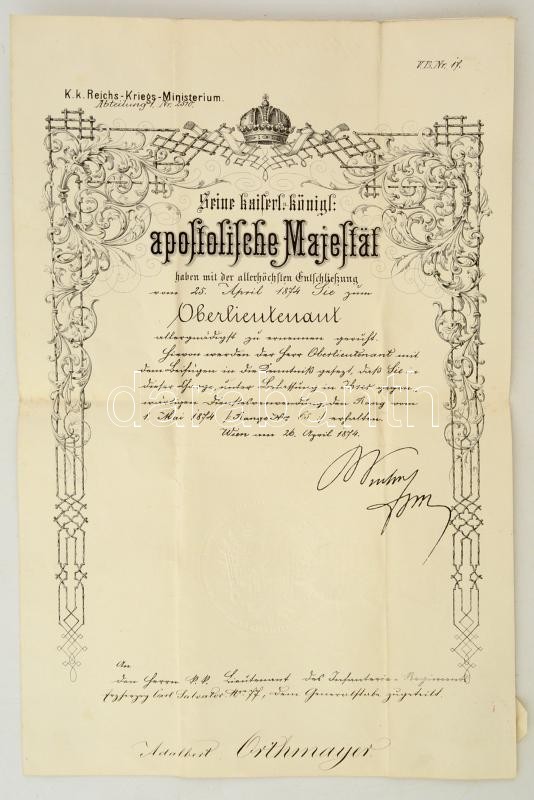 V.B.Nr. 17.
K.k. Reichs-Kriegs-Ministerium.
Abteilung 1. Nr. 2310.
Seine kaiserl: königl:
apostolische Majestät
haben mit der allerhöchsten Entschließung
vom 25. April 1874 Sie zum
Oberlieutenant
allergnädigst zu ernennen geruht.
Hievon werden der Herr Oberlieutenant mit
dem Beifügen in die Kenntniß gesezt, daß Sie in
dieser Charge, unter Belassung in Ihrer gegen-
wärtigen Dienstesverwendung, den Rang vom
1. Mai 1874 erhalten.
Wien am 26. April 1874.
darabanth
An
den Herrn k.k. Lieutenant des Infanterie-Regiments
Erzherzog Carl Salvator No 77, dem Generalstabe zugetheilt.
Adalbert Orthmayer